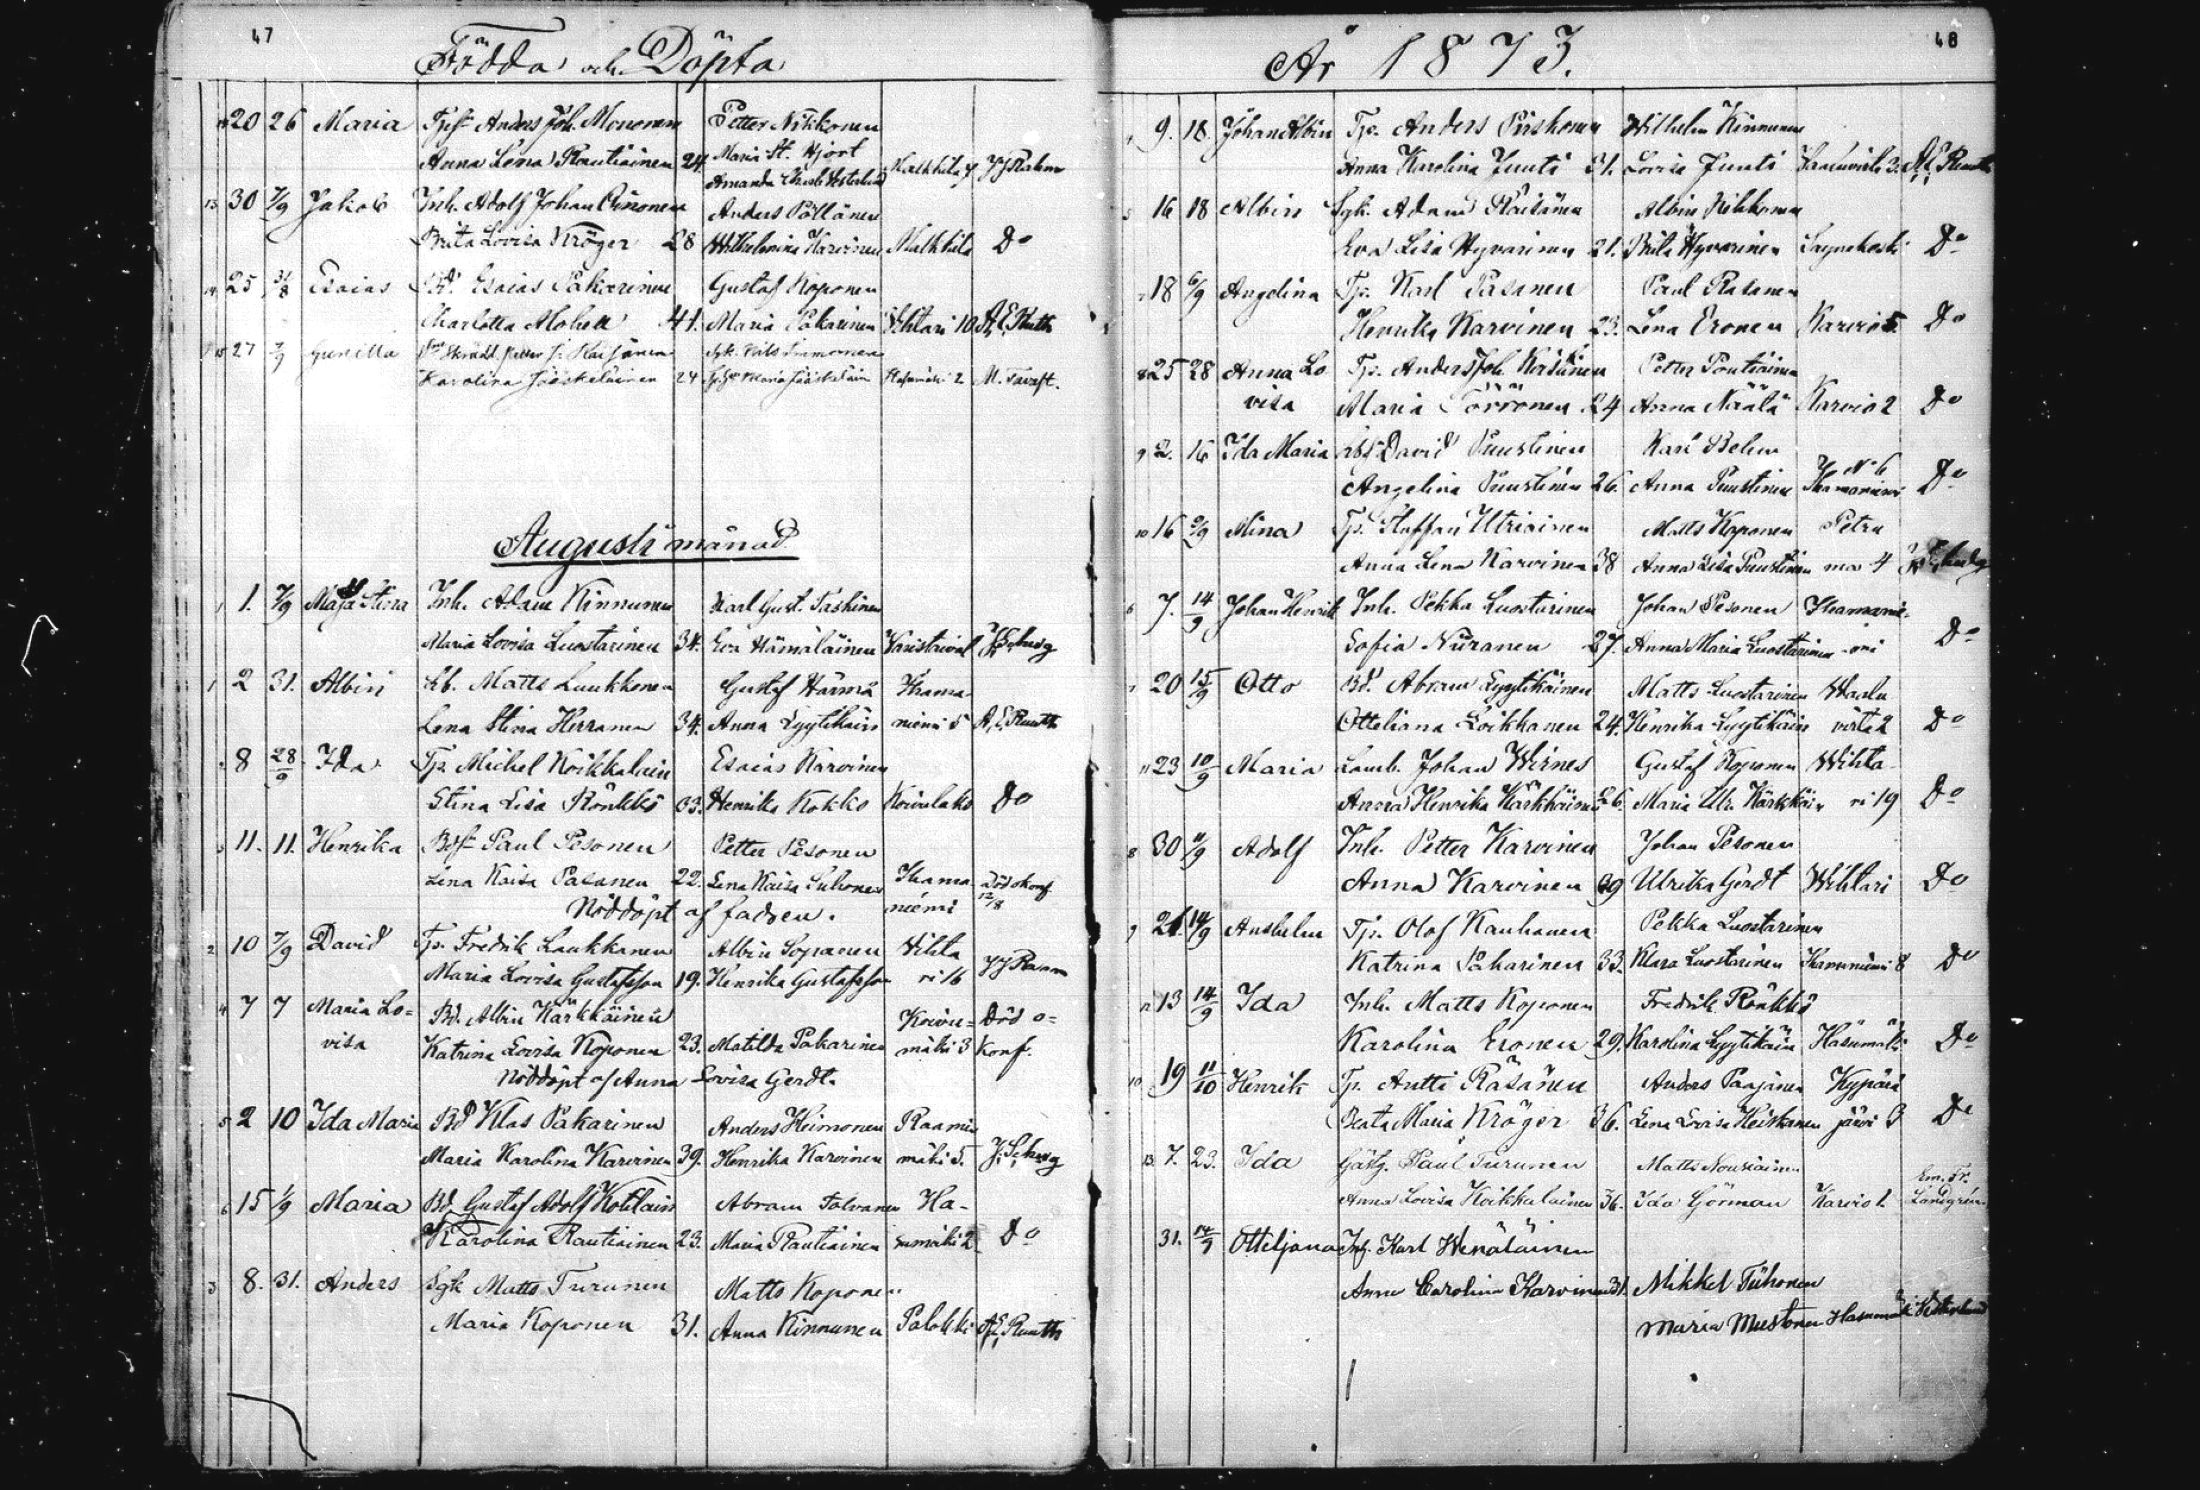 47
Födda och Döpta
20 26 Maria Tjf. Anders Joh. Mononen Petter Nikkonen
Anna Lena Rautiainen 24. Maria St. Hjort Malkkila 7
Amanda
13 30 7/9 Jakob Inh. Adolf Johan Anders Pöllänen
Brita Lovisa Kröger 28 Wilhelmina Karvinen Malkkila Do
14 25 31/8 Esaias Bd. Esaias Pakarinen Gustaf Koponen
Charlotta 41. Maria Pakarinen Wihtari 10 A. E. Ruuth
15 27 7/9 Gunilla
Karolina Jääskeläinen 24 Maria Jääskeläin 2 M. Tavast.
Augusti månad
1 1. 7/9 Maja Stina Inh. Adam Kinnunen Karl Gust. Taskinen
Maria Lovisa Luostarinen 34. Eva Hämäläinen Varistaival
1 2 31. Albin Lb. Matts Luukkonen Gustaf Härmä Kerma
Lena Stina Herranen 34. Anna Lyytikäin niemi 5 A. E. Ruuth
2 8 28/9 Ida Tjr. Michel Koikkalain Esaias Karvinen
Stina Lisa Rönkkö 33. Henrika Kokko Koivulaks Do
3 11. 11. Henrika Bdsf. Paul Pesonen Petter Pesonen
Lena Kaisa Pasanen 22. Lena Kaisa Suhonen Kerma Död okonf
niemi 12/8
Nöddöpt af fadren.
2 10 7/9 David Tjr. Fredrik Laukkanen Albin Sopanen Wihta
Maria Lovisa Gustafsson 19. Henrika Gustafsson ri 16
4 7 7 Maria Lo= Bd. Albin Kärkkäinen Koivu= Död o=
visa Katrina Lovisa Koponen 23. Matilda Pakarinen mäki 3 konf.
Nöddöpt af Anna Lovisa Gerdt.
5 2 10 Ida Maria Bd Klas Pakarinen Anders Heimonen Raami
Maria Karolina Karvinen 39. Henrika Karvinen mäki 5.
6 15 1/9 Maria Bd. Gustaf Adolf Kotilain Abram Tolvanen Ha-
Karolina Rautiainen 23. Maria Rautiainen sumäki 2 Do
3 8. 31. Anders Sgk Matts Turunen Matts Koponen
Maria Koponen 31. Anna Kinnunen Palokki A. E. Ruuth
48
År 1873.
9. 18. Johan Albin Tjr. Anders Pirskonen Wilhelm Kinnunen
Anna Karolina Juuti 31. Lovisa Juuti 3. A. E. Ruuth
16 18 Albin Sgk. Adam Räisänen Albin Nikkonen
Eva Lisa Hyvärinen 21. Brita Hyvärinen Saynekoski Do
18 6/9 Angelina Tjr. Karl Pasanen Paul Pasanen
Henrika Karvinen 23. Lena Eronen Karvio 5 Do
8 25 28 Anna Lo Tjr. Anders Joh. Räisänen Petter Poutiainen
visa Maria Törrönen 24 Anna Näälä Karvio 2 Do
9 2. 16 Ida Maria David Puustinen Karl Belm No 6
Angelina Puustinen 26. Anna Puustinen Kermaniemi Do
10 16 9/9 Mina Tjr. Staffan Utriainen Matts Koponen Petru
Anna Lena Karvinen 38 Anna Lisa Puustinen ma 4
6 7. 14/9 Johan Henrik Inh. Pekka Luostarinen Johan Pesonen Kermani-
Sofia Niiranen 27. Anna Maria Luostarinen Do
7 20 15/9 Otto Bd. Abram Lyytikäinen Matts Luostarinen Waalu
Otteliana Loikkanen 24. Henrika Lyytikäin virta 2 Do
11 23 10/9 Maria Lamb. Johan Wirnes Gustaf Koponen Wihta-
Anna Henrika Kärkkäinen 26. Maria Ulr. Kärkkäin ri 19 Do
8 30 11/9 Adolf Inh. Petter Karvinen Johan Pesonen
Anna Karvinen 39 Ulrika Gerdt Wihtari Do
9 21. 14/9 Anshelm Tjr. Olof Kauhanen Pekka Luostarinen
Katrina Pakarinen 33. Klara Luostarinen Kermaniemi 8 Do
12 13 14/9 Ida Inh. Matts Koponen Fredrik Rönkkö
Karolina Eronen 29. Karolina Lyytikäin Häsumäki Do
10 19 11/10 Henrik Tjr. Antti Räsänen Anders Paajanen Kypärä
Beata Maria Kröger 36. Lena Lovisa Heiskanen järvi 3 Do
13 7. 23. Ida Gästg. Paul Turunen Matts Nousiainen Em. Fr.
Anna Lovisa Koikkalainen 36. Ida Görman Karvio 1. Landgrén
31. 14/9 Otteljana Inh. Karl Wenäläinen
Anna Carolina Karvinen 31. Mikkel Tiihonen
Maria Mustonen Hasumäki